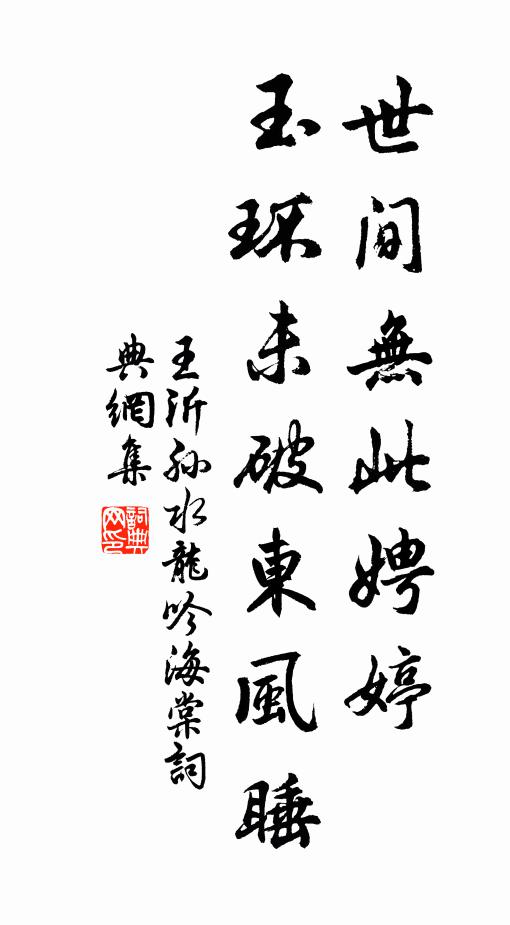 世間無此娉婷
玉環未破東風睡
王沂孫水龍吟海棠詞
典網集
詞典網印